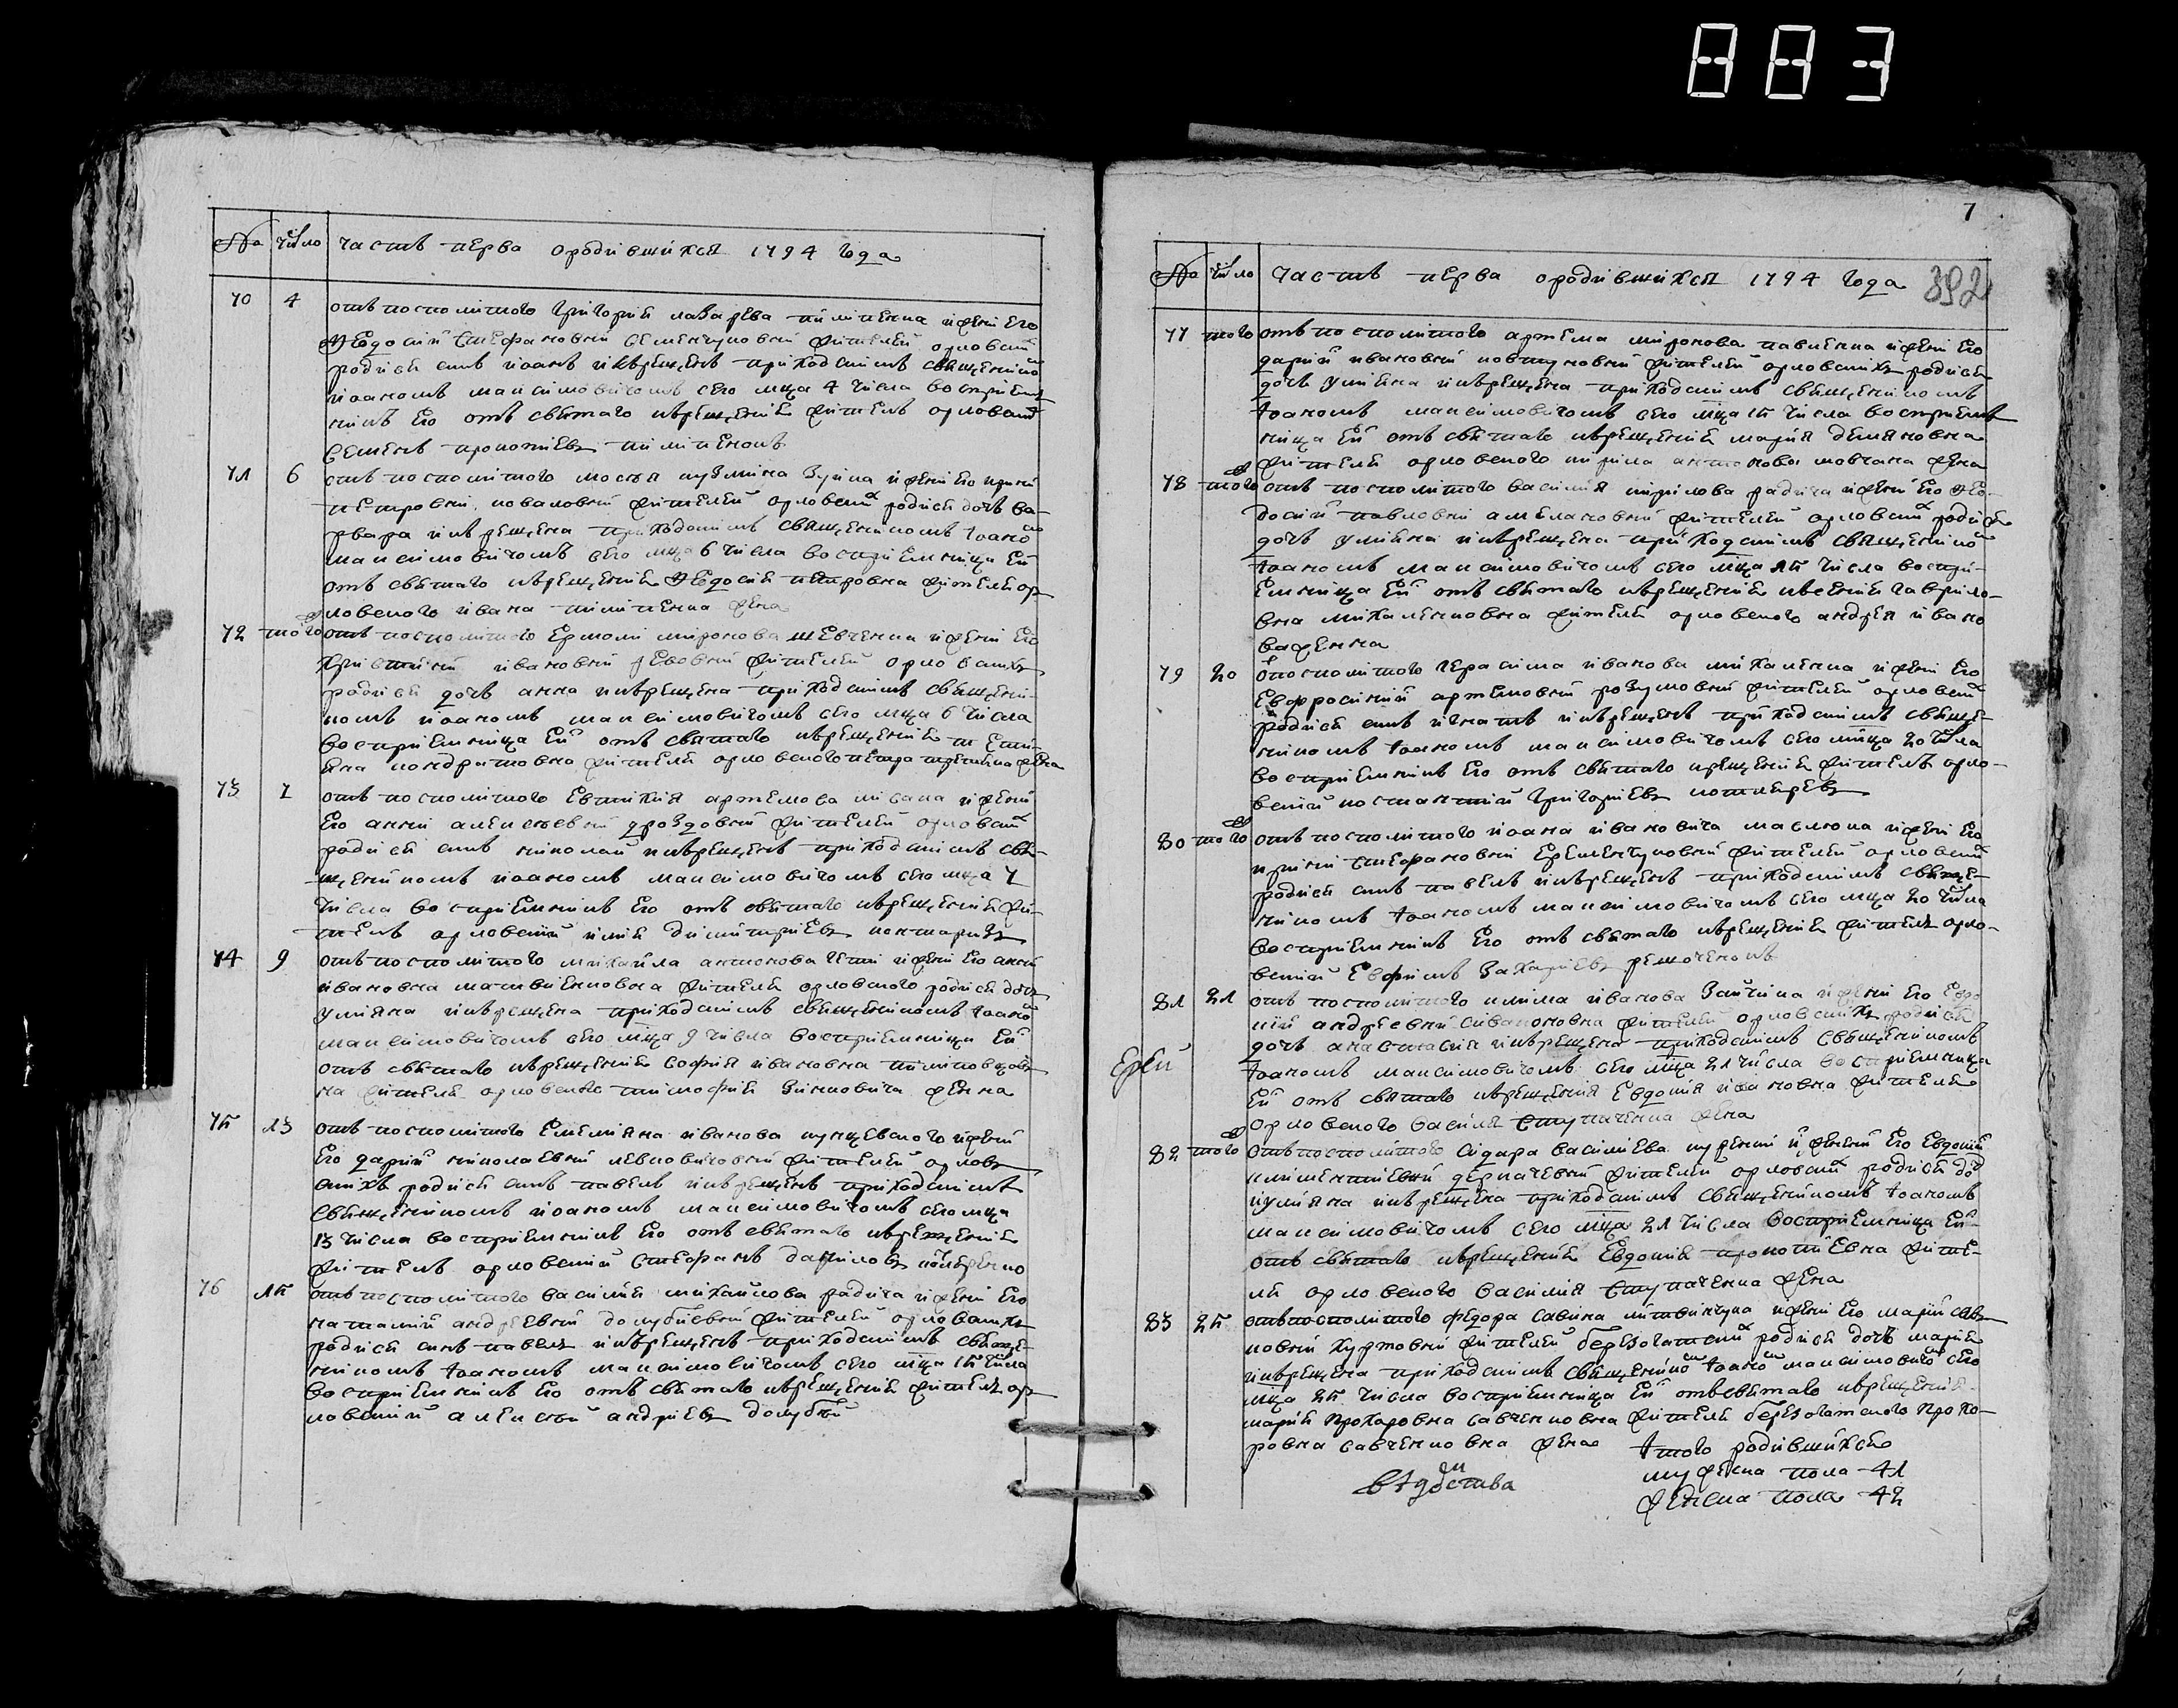 883
№ число часть перва ородившихся 1794 года
70 4 отъ посполитого григория лазарева пилипенка и жени его
феодосии стефановни семенчуковни жителей орловских
родися синъ иоанъ и крещенъ приходскимъ священико
иоаномъ максимовичомъ сего мца 4 числа восприем
никъ его отъ святаго крещения житель орловский
семенъ прокопиевъ пилипенокъ
71 6 отъ посполитого мосея кузмина зуйка и жени его ирини
петровни коваловни жителей орловских родися дочь ва-
рвара и крещена приходскимъ священикомъ Iоано
максимовичомъ сего мца 6 числа восприемница ей
отъ святаго крещения феодосия петровна жителя ор
ловского ивана пилипенка жена
72 того отъ посполитого ермоли миронова шевченка и жени его
христини ивановни жителей орловских
родися дочь анна и крещена приходскимъ священи-
комъ иоаномъ максимовичомъ сего мца 6 числа
восприемница ей отъ святаго крещения
кондратовна жителя орловского петра жена
73 7 отъ посполитого евтихия артемова и жени
его анни алексеевни дроздовни жителей орловских
родися синъ николай и крещенъ приходскимъ свя-
щеникомъ иоаномъ максимовичомъ сего мца 7
числа восприемникъ его отъ святаго крещения жи-
тель орловский илия димитриевъ
74 9 отъ посполитого михайла антонова и жени его анни
ивановна матвиенковна жителя орловского родися дочь
улияна и крещена приходскимъ священикомъ Iоано
максимовичомъ сего мца 9 числа восприемница ей
отъ святаго крещения софия ивановна
на жителя орловского тимофия зинковича жена
75 13 отъ посполитого емелияна иванова кунцевского и жени
его дарии николаевни левковичовни жителей орлов
скихъ родися синъ павелъ и крещенъ приходскимъ
священикомъ иоаномъ максимовичомъ сего мца
13 числа восприемникъ его отъ святаго крещения
житель орловский стефанъ даниловъ
76 15 отъ посполитого василия михайлова радича и жени его
наталии андреевни голубиевни жителей орловских
родися синъ павелъ и крещенъ приходскимъ священ-
никомъ Iоаномъ максимовичомъ сего мца 15 числа
восприемникъ его отъ святаго крещения житель ор
ловский алексей андриевъ голубий
7
№ число часть перва ородившихся 1794 года 392
77 того отъ посполитого артема миронова павленка и жени его
дарии ивановни ковтуновни жителей орловских родися
дочь улияна и крещена приходскимъ священикомъ
Iоаномъ максимовичомъ сего мца 15 числа восприем
ница ей отъ святаго крещения мария демяновна
жителя орловского кирила антонова мовчана жена
78 того отъ посполитого василия кирилова радича и жени его фео-
досии павловни жителей орловских родися
дочь улияна и крещена приходскимъ священико
Iоаномъ максимовичомъ сего мца 15 числа воспри-
емница ей отъ святаго крещения ксения гаврило-
вна михаленковна жителя орловского андрея ивано
ва женка
79 20 о посполитого герасима иванова михаленка и жени его
евфросинии артемовни розумовни жителей орловских
родися синъ игнатъ и крещенъ приходскимъ священ-
никомъ Iоаномъ максимовичомъ сего мца 20 числа
восприемникъ его отъ святаго крещения житель орло-
вский костантий григориевъ котляревъ
80 того отъ посполитого иоана ивановича маслюка и жени его
ирини стефановни еременчуковни жителей орловских
родися синъ павелъ и крещенъ приходскимъ священ-
никомъ Iоаномъ максимовичомъ сего мца 20 числа
восприемникъ его отъ святаго крещения житель орло-
вский евфимъ захариевъ решоченокъ
81 21 отъ посполитого клима иванова зайчика и жени его евдо
кии андреевни сиваконовна жителей орловских родися
дочь анастасия и крещена приходскимъ священикомъ
Iоаномъ максимовичомъ сего мца 21 числа восприемница
ей отъ святаго крещения евдокия ивановна жителя
орловского василя ступаченка жена
ерей
82 того отъ посполитого сидора василиева и жени его евдокии
климентиевни деркачевни жителей орловских родися до
иулияна и крещена приходскимъ священикомъ Iоаномъ
максимовичомъ сего мца 21 числа восприемница ей
отъ святаго крещения евдокия прокопиевна жите-
ля орловского василия ступаченка жена
83 25 отъ посполитого федора савина литвинчука и жени его марии
хуртовни жителей березоточских родися дочь мария
и крещена приходскимъ священико Iоано максимовичо сего
мца 25 числа восприемница ей отъ святаго крещения
мария прохаровна савченковна жителя березотского прохо-
ровна савченковна жена
Итого родившихся
мужеска пола 41
женска пола 42